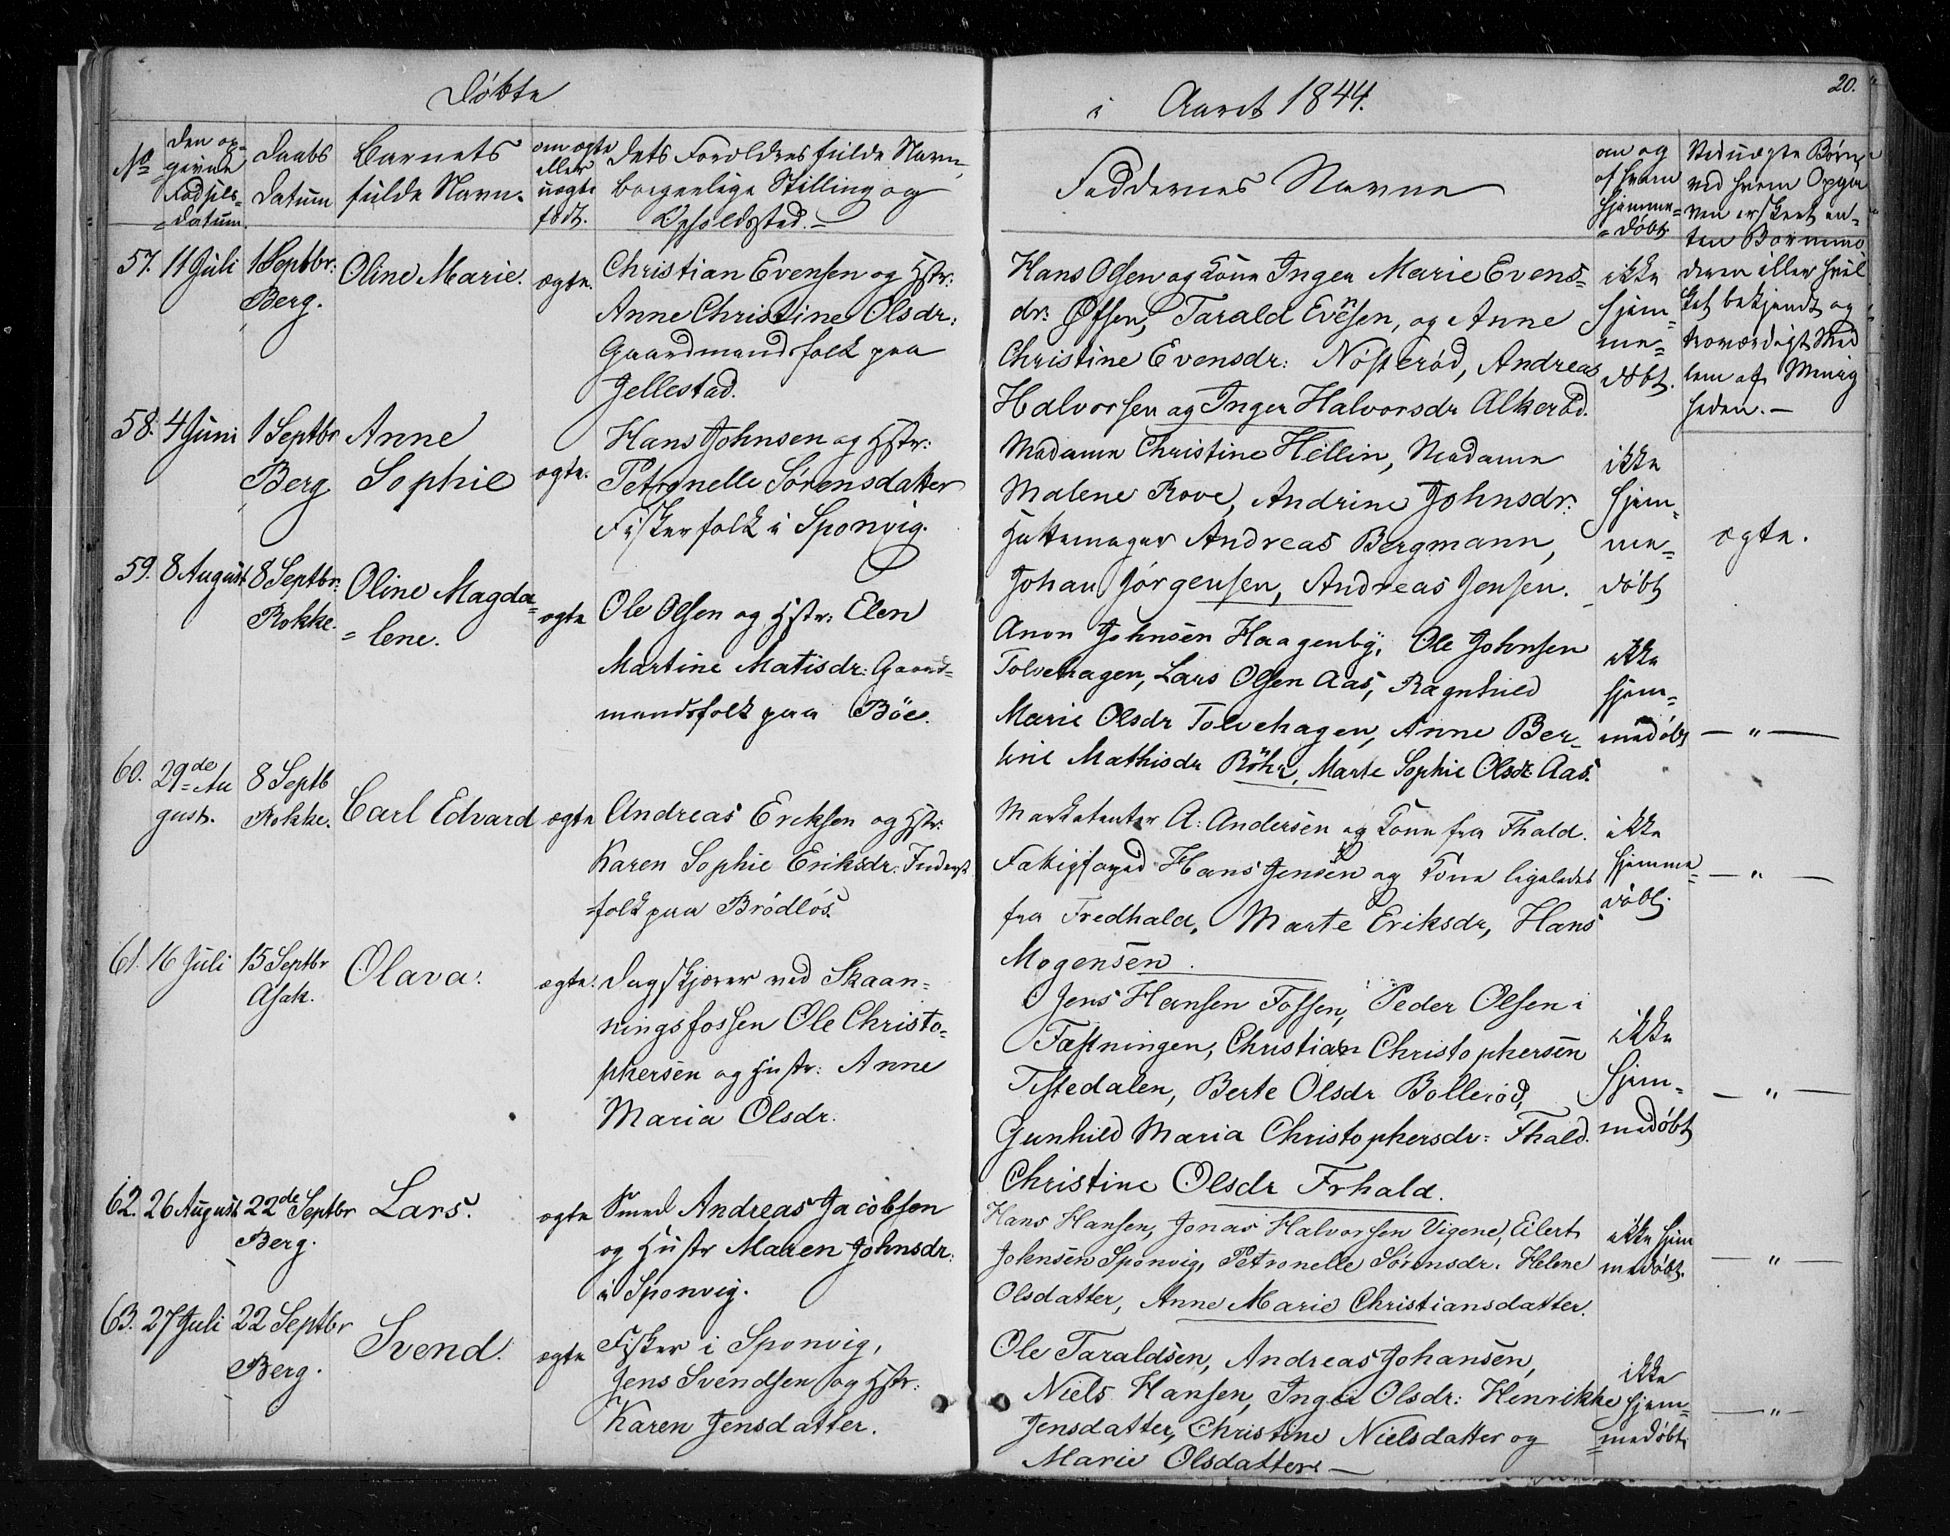 Døbte
i Aaret 1844.
20.
No
den op-
givne
Fødsels-
datum.
Daabs
Datum
Barnets
fulde Navn.
om ægte
eller
uægte
født.
dets Forældres fulde Navn,
borgerlige Stilling og
Opholdssted.
Faddernes Navne
om og
af hvem
hjemme-
døbt
Ved uægte Børn
ved hvem Opga
ven er skeet en-
ten Barnemo
deren eller hvil
ket bekjendt og
troværdigt Med
lem af Menig
heden.
57. 11 Juli 1 Septbr:
Berg.
Oline Marie.
ægte.
Christian Evensen og Hstr:
Anne Christine Olsdr:
Gaardmandsfolk paa
Jellestad.
Hans Olsen og Kone Inger Marie Evens-
dr: Øfsen, Tarald Evensen, og Anne
Christine Evensdr: Nøsterød, Andreas
Halvorsen og Inger Halvorsdr Alkerød.
ikke
hjem-
me-
døbt.
58. 4 Juni 1 Septbr
Berg
Anne
Sophie
ægte.
Hans Johnsen og Hstr:
Petronelle Sørensdatter
Fiskerfolk i Sponvig.
Madame Christine Hellin, Madame
Malene Rove, Andrine Johnsdr:
Hattemager Andreas Bergmann,
Johan Jørgensen, Andreas Jensen.
ikke
hjem-
me-
døbt
ægte.
59. 8 August 8 Septbr:
Rokke.
Oline Magda-
-lene.
ægte
Ole Olsen og Hstr: Elen
Martine Matisdr: Gaard-
mandsfolk paa Böe.
Anon Johnsen Haagenby, Ole Johnsen
Tolvehagen, Lars Olsen Aas, Ragnhild
Marie Olsdr Tolvehagen, Anne Ber-
tine Mathisdr Röhr, Marte Sophie Olsdr Aas.
ikke
hjem-
medøbt
— " —
60. 29de Au
gust.
8 Septb
Rokke.
Carl Edvard
ægte
Andreas Eriksen og Hstr:
Karen Sophie Eriksdr. Inderst
-folk paa Brödlös.
Marketenter A: Andersen og Kone fra Fhald.
Fattigfoged Hans Jensen og Kone ligeledes
fra Fredhald, Marte Eriksdr, Hans
Mogensen.
ikke
hjemme-
døbt.
— " —
61. 16 Juli 15 Septbr
Asak.
Olava.
ægte.
Dagskjærer ved Skaan-
ningsfossen Ole Christo-
phersen og Hustr: Anne
Maria Olsdr.
Jens Hansen Fossen, Peder Olsen i
Fæstningen, Christian Christophersen
Tistedalen, Berte Olsdr Bollerød,
Gunhild Maria Christophersdr: Fhald.
Christine Olsdr Frhald.
ikke
hjem-
medøbt
— " —
62. 26 August 22de Septbr
Berg.
Lars.
ægte
Smed Andreas Jacobsen
og Hustr Maren Johnsdr.
i Sponvig.
Hans Hansen, Jonas Halvorsen Vigene, Eilert
Johnsen Sponvig, Petronelle Sørensdr. Helene
Olsdatter, Anne Marie Christiansdatter.
ikke hjem
medøbt.
— " —
63. 27 Juli 22 Septbr
Berg.
Svend.
ægte
Fisker i Sponvig,
Jens Svendsen og Hstr:
Karen Jensdatter.
Ole Taraldsen, Andreas Johansen,
Niels Hansen, Inger Olsdr: Henrikke
Jensdatter, Christine Nielsdatter og
Marie Olsdatter. —
ikke
hjem-
medøbt
— " —